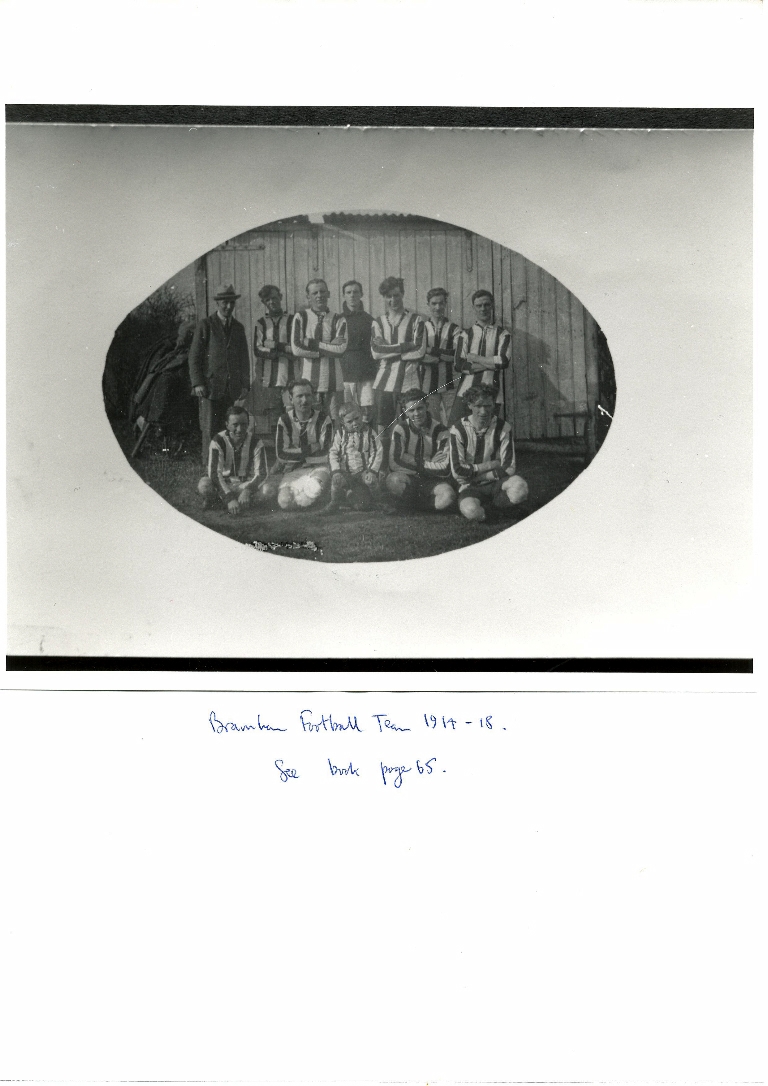 Bramham Football Team 1914-18.
See book page 65.